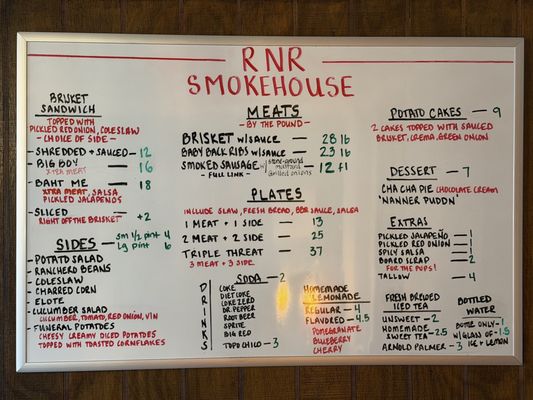 RNR
SMOKEHOUSE
BRISKET
SANDWICH
TOPPED WITH
PICKLED RED ONION, COLESLAW
- CHOICE OF SIDE -
- SHREDDED + SAUCED - 12
- BIG BOY - 16
XTRA MEAT
- BAHT ME - 18
XTRA MEAT, SALSA
PICKLED JALAPENOS
- SLICED - +2
RIGHT OFF THE BRISKET
SIDES - sm 1/2 pint 4
Lg pint 6
- POTATO SALAD
- RANCHERO BEANS
- COLESLAW
- CHARRED CORN
- ELOTE
- CUCUMBER SALAD
CUCUMBER, TOMATO, RED ONION, VIN
- FUNERAL POTATOES
CHEESY CREAMY DICED POTATOES
TOPPED WITH TOASTED CORNFLAKES
MEATS
- BY THE POUND -
BRISKET W/SAUCE - 28 lb
BABY BACK RIBS W/SAUCE - 23 lb
SMOKED SAUSAGE W/ stone-ground mustard grilled onions - 12 f1
- FULL LINK -
PLATES
INCLUDE SLAW, FRESH BREAD, BBQ SAUCE, SALSA
1 MEAT + 1 SIDE - 13
2 MEAT + 2 SIDE - 25
TRIPLE THREAT - 37
3 MEAT + 3 SIDE
DRINKS
SODA - 2
COKE
DIET COKE
COKE ZERO
DR. PEPPER
ROOT BEER
SPRITE
BIG RED
TOPO CHICO - 3
HOMEMADE
LEMONADE
REGULAR - 4
FLAVORED - 4.5
POMEGRANATE
BLUEBERRY
CHERRY
POTATO CAKES - 9
2 CAKES TOPPED WITH SAUCED
BRISKET, CREMA, GREEN ONION
DESSERT - 7
CHA CHA PIE CHOCOLATE CREAM
'NANNER PUDDN'
EXTRAS
PICKLED JALAPEÑO - 1
PICKLED RED ONION - 1
SPICY SALSA - 1
BOARD SCRAP - 2
FOR THE PUPS!
TALLOW - 4
FRESH BREWED
ICED TEA
UNSWEET - 2
HOMEMADE
SWEET TEA - 2.5
ARNOLD PALMER - 3
BOTTLED
WATER
BOTTLE ONLY - 1
W/GLASS OF - 1.5
ICE + LEMON